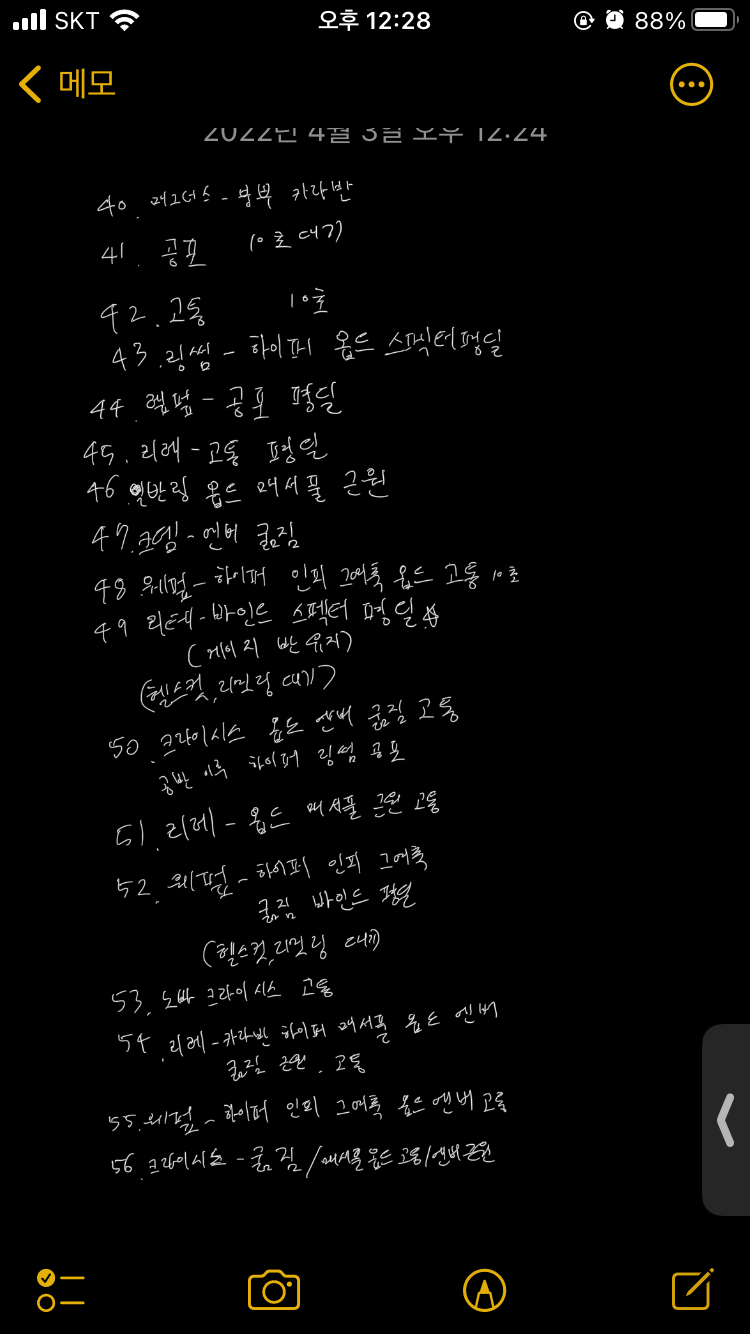 SKT 오후 12:28 88%
메모
2022년 4월 3일 오후 12:24
40. 매그너스 - 북북 카라반
41. 공포 10초 대기
42. 고통 10초
43. 링썸 - 하이퍼 옵드 스펙터평딜
44. 웨펖 - 공포 평딜
45. 리레 - 고통 평딜
46. 일반링 옵드 매서풀 근원
47. 크뎀 - 엔버 굶짐
48. 웨펖 - 하이퍼 인피 그여축 옵드 고통 10초
49 리테 - 바인드 스펙터 평딜
(게이지 반 유지)
(헬스컷, 리밋링 대기)
50. 크라이시스 옵드 엔버 굶짐 고통
공반 이후 하이퍼 링썸 공포
51. 리레 - 옵드 매서풀 근원 고통
52. 웨펖 - 하이퍼 인피 그여축
굶짐 바인드 평딜
(헬스컷, 리밋링 대기)
53. 노바 크라이시스 고통
54. 리레 - 카라반 하이퍼 매서풀 옵드 엔버
굶짐 근원. 고통
55. 웨펖 - 하이퍼 인피 그여축 옵드 엔버 고통
56. 크라이시스 - 굶짐 / 매서풀 옵드 고통 / 엔버 근원